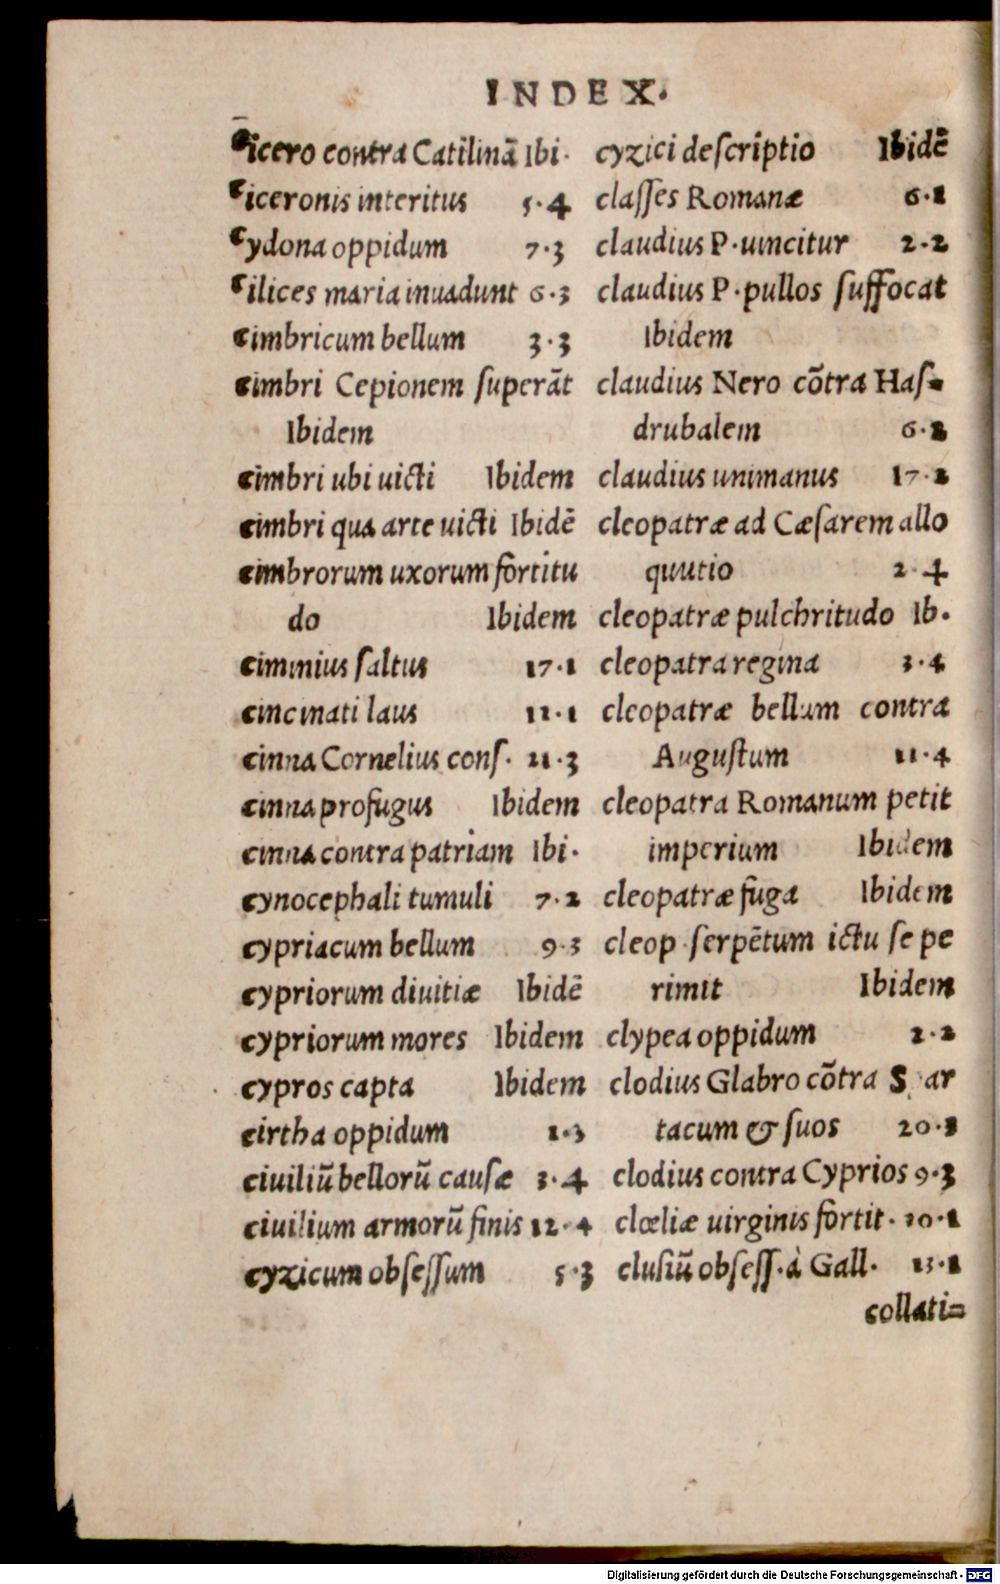 INDEX.
cicero contra Catilinā Ibi.
ciceronis interitus 5.4
cydona oppidum 7.3
cilices maria inuadunt 6.3
cimbricum bellum 3.3
cimbri Cepionem superāt
Ibidem
cimbri ubi uicti Ibidem
cimbri qua arte uicti Ibidē
cimbrorum uxorum fortitu
do Ibidem
ciminius saltus 17.1
cincinati laus 11.1
cinna Cornelius cons. 21.3
cinna profugus Ibidem
cinna contra patriam Ibi.
cynocephali tumuli 7.2
cypriacum bellum 9.3
cypriorum diuitiæ Ibidē
cypriorum mores Ibidem
cypros capta Ibidem
cirtha oppidum 1.3
ciuiliū bellorū causæ 3.4
ciuilium armorū finis 12.4
cyzicum obsessum 5.3
cyzici descriptio Ibidē
classes Romanæ 6.2
claudius P. uincitur 2.2
claudius P. pullos suffocat
Ibidem
claudius Nero cōtra Has-
drubalem 6.2
claudius unimanus 17.2
cleopatræ ad Cæsarem allo
quutio 2.4
cleopatræ pulchritudo Ib.
cleopatra regina 3.4
cleopatræ bellum contra
Augustum 11.4
cleopatra Romanum petit
imperium Ibidem
cleopatræ fuga Ibidem
cleop. serpētum ictu se pe
rimit Ibidem
clypea oppidum 2.2
clodius Glabro cōtra S ar
tacum & suos 20.3
clodius contra Cyprios 9.3
clœliæ uirginis fortit. 10.1
clusiū obsess. à Gall. 13.1
collati=
Digitalisierung gefördert durch die Deutsche Forschungsgemeinschaft - DFG